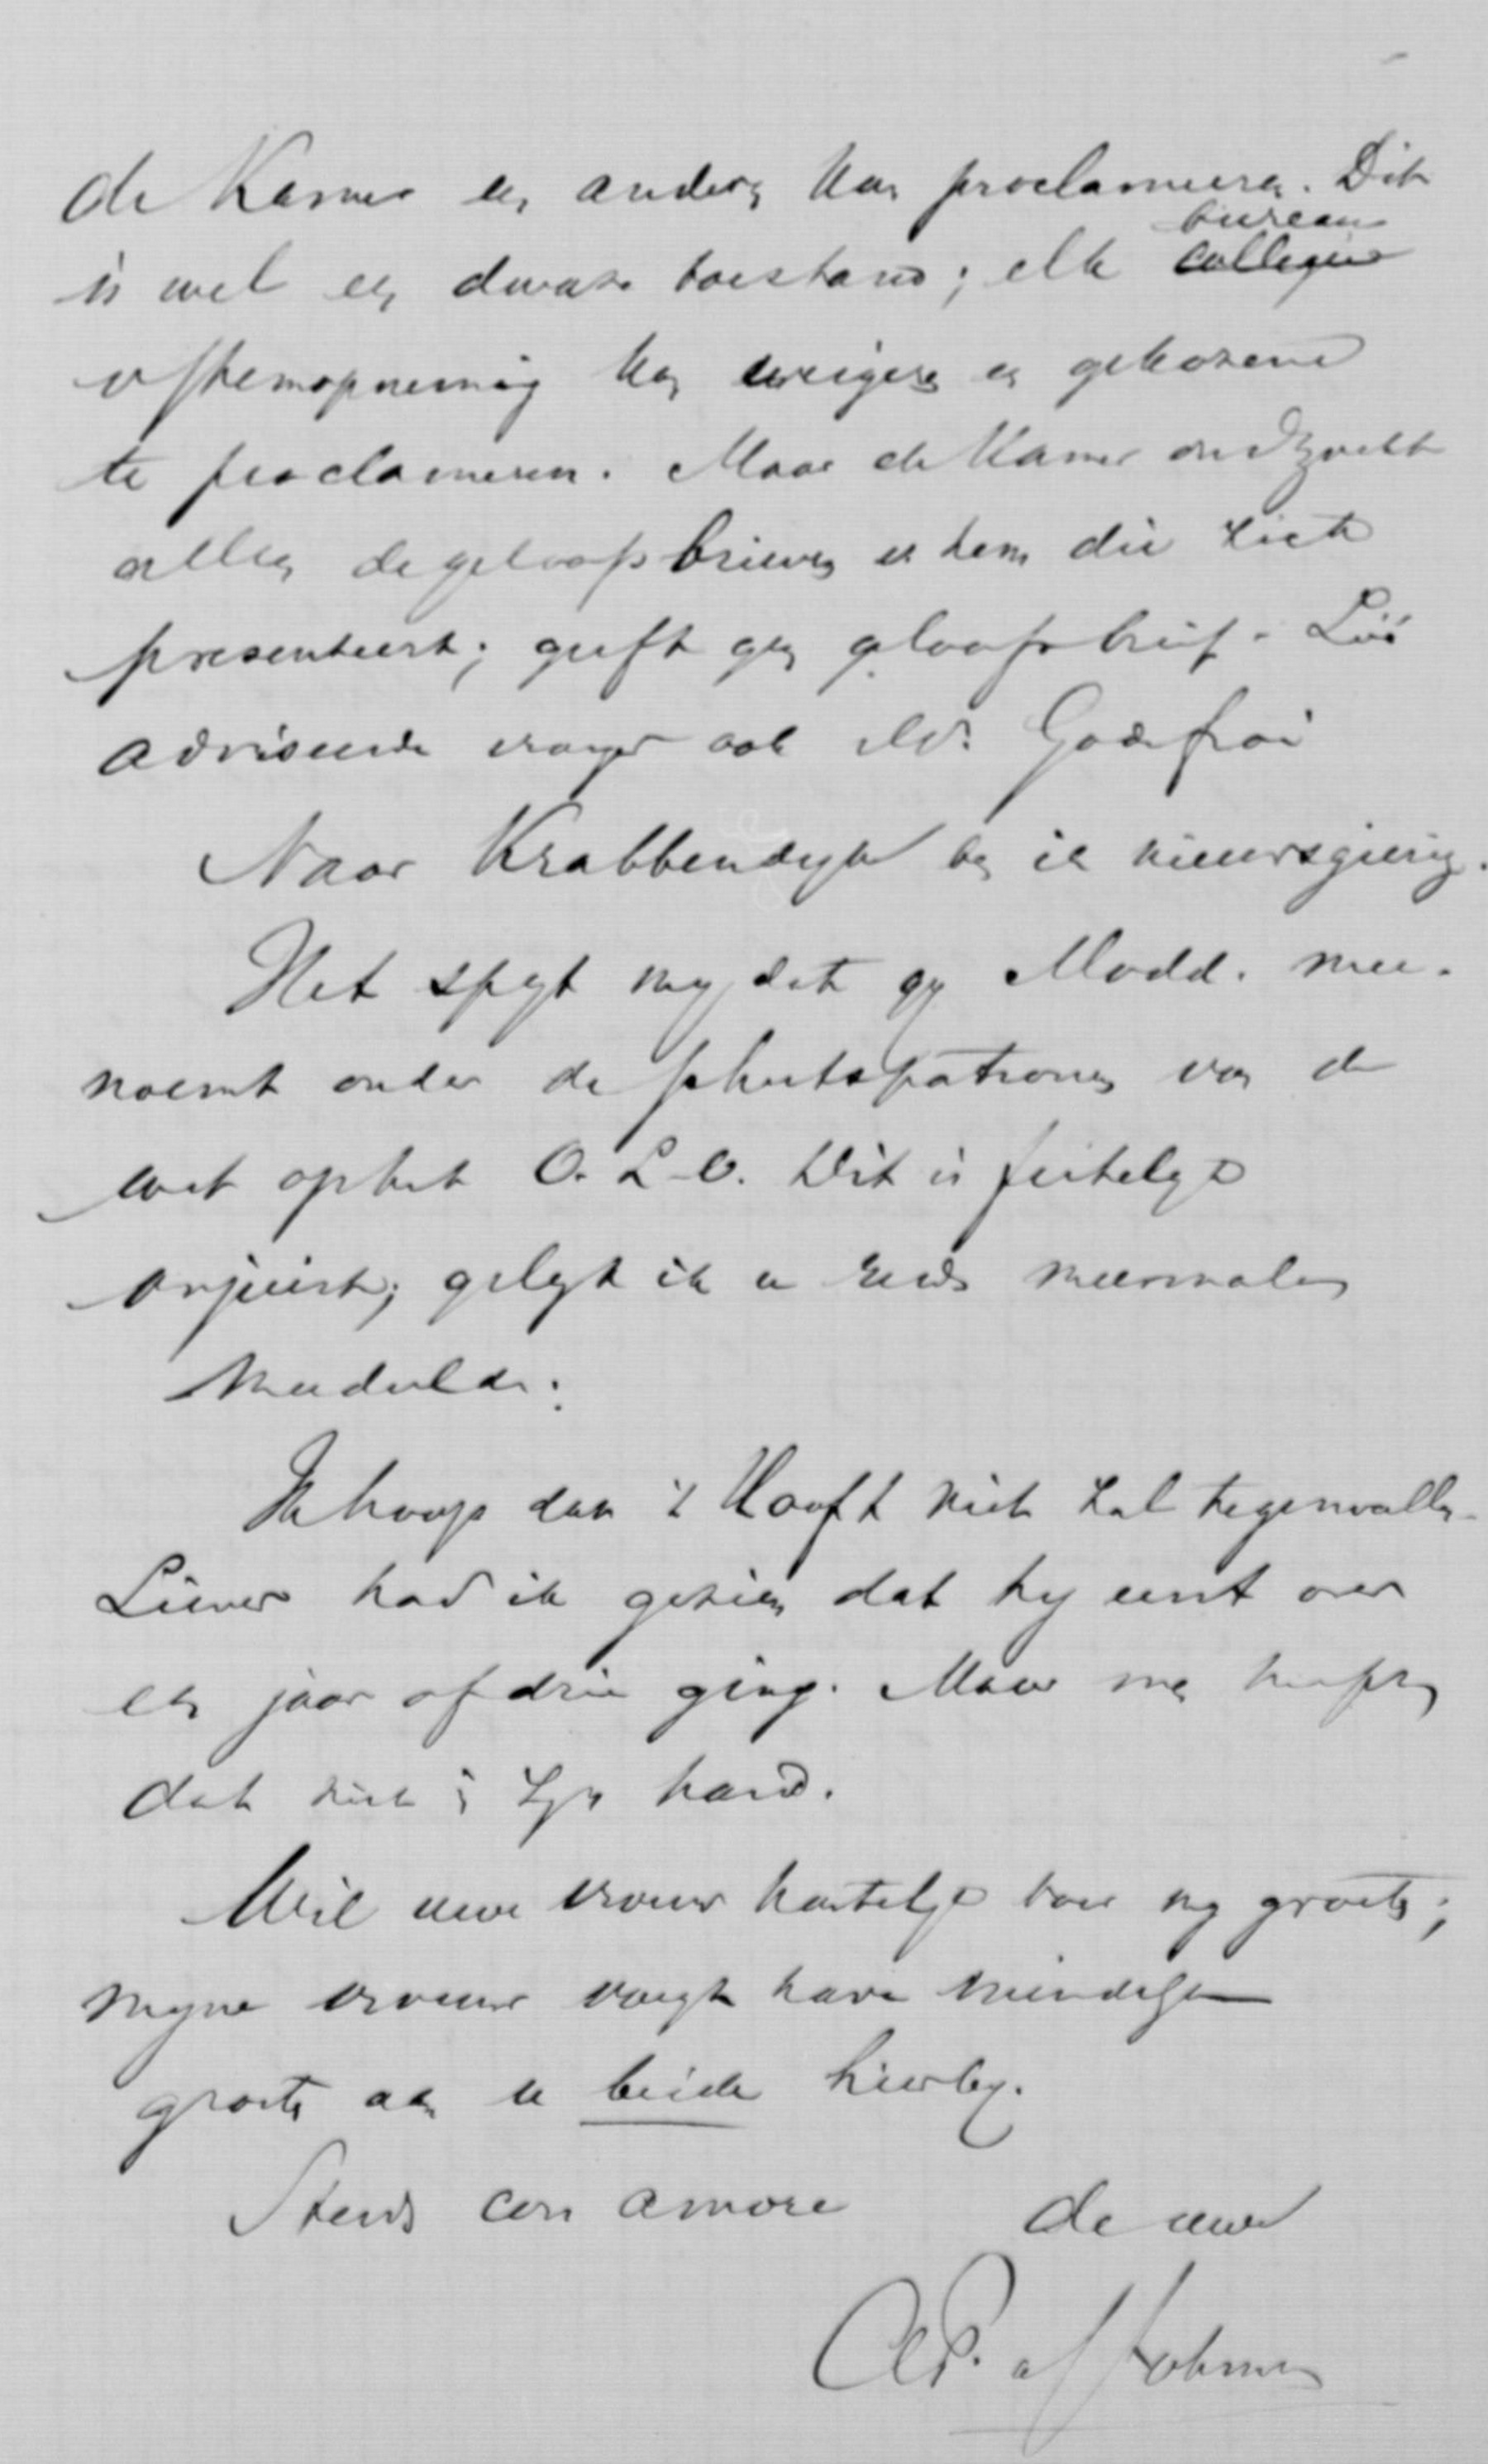 de Kamer een andere kan proclameeren. Dit
is wel een dwaze toestand; elk
bureau
collegie
v stemopneming kan weigeren een gekozene
te proclameren. Maar de Kamer onderzoekt
alleen de geloofsbrieven v hem die zich
presenteert; geeft geen geloofsbrief. Lees
adviseerde vroeger ook Mr. Godefroi
Naar Krabbendyke ben ik nieuwsgierig.
Het spyt my dat gy Modd. mee
noemt onder de schutspatronen van de
wet op het O. L. O. Dit is feitelyk
onjuist; gelyk ik u reeds meermalen
mededeelde.
Ik hoop dat 't Hooft niet zal tegenvallen.
Liever had ik gezien dat hy eerst over
een jaar of drie ging. Maar men heeft
dat niet in zyn hand.
Wil uwe vrouw hartelyk voor my groeten;
myne vrouw voegt hare vriendelyke
groeten aan u beide hierby.
Steeds con amore de uwe
AF. de S Lohman